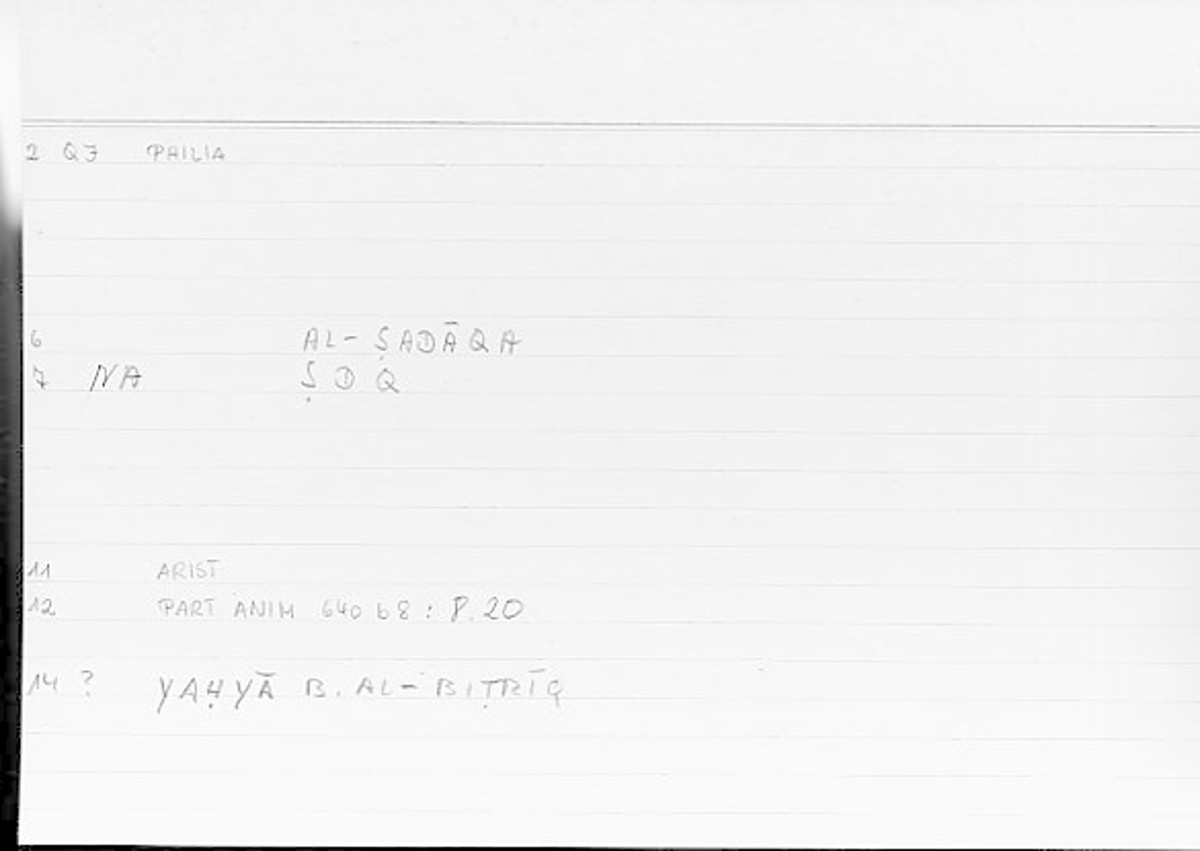 2 Q7 PHILIA
6 AL-ṢADĀQA
7 NA ṢDQ
11 ARIST
12 PART ANIM 640 b 8 : 8.20
14 ? YAḤYĀ B. AL-BIṬRĪQ